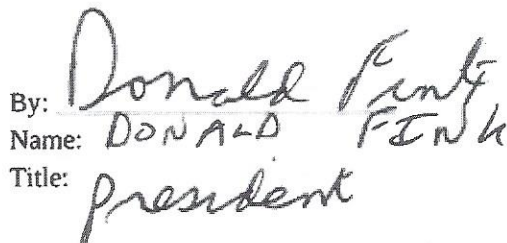 By: Donald Fink
Name: DONALD FINK
Title: President